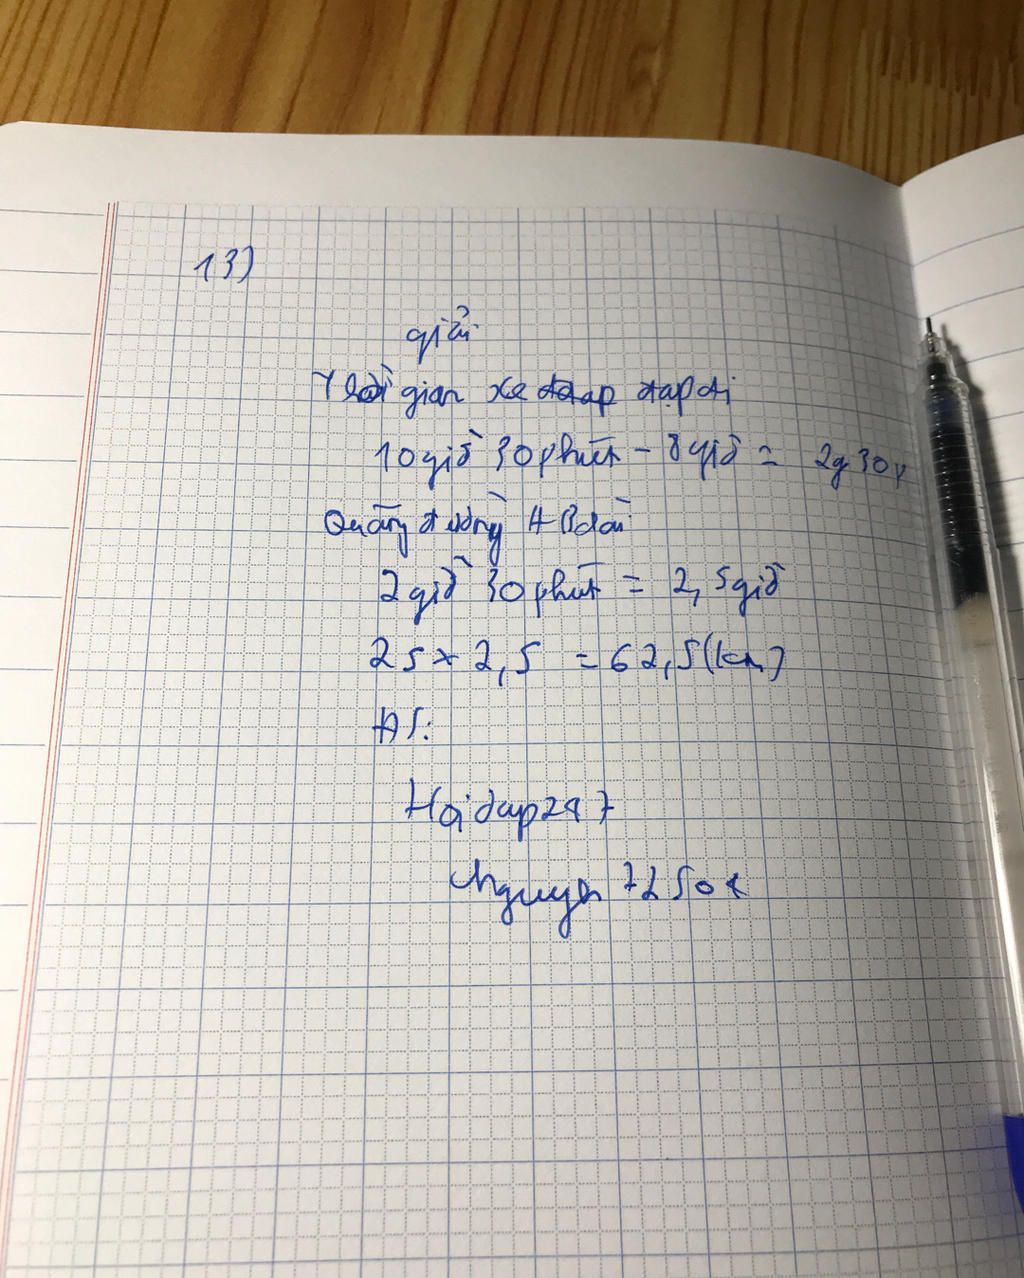 13)
giải
Thời gian xe đạp đi
10 giờ 30 phút - 8 giờ = 2g 30p
Quãng đường AB dài
2 giờ 30 phút = 2,5 giờ
25 x 2,5 = 62,5 (km)
ĐS:
Hoidap247